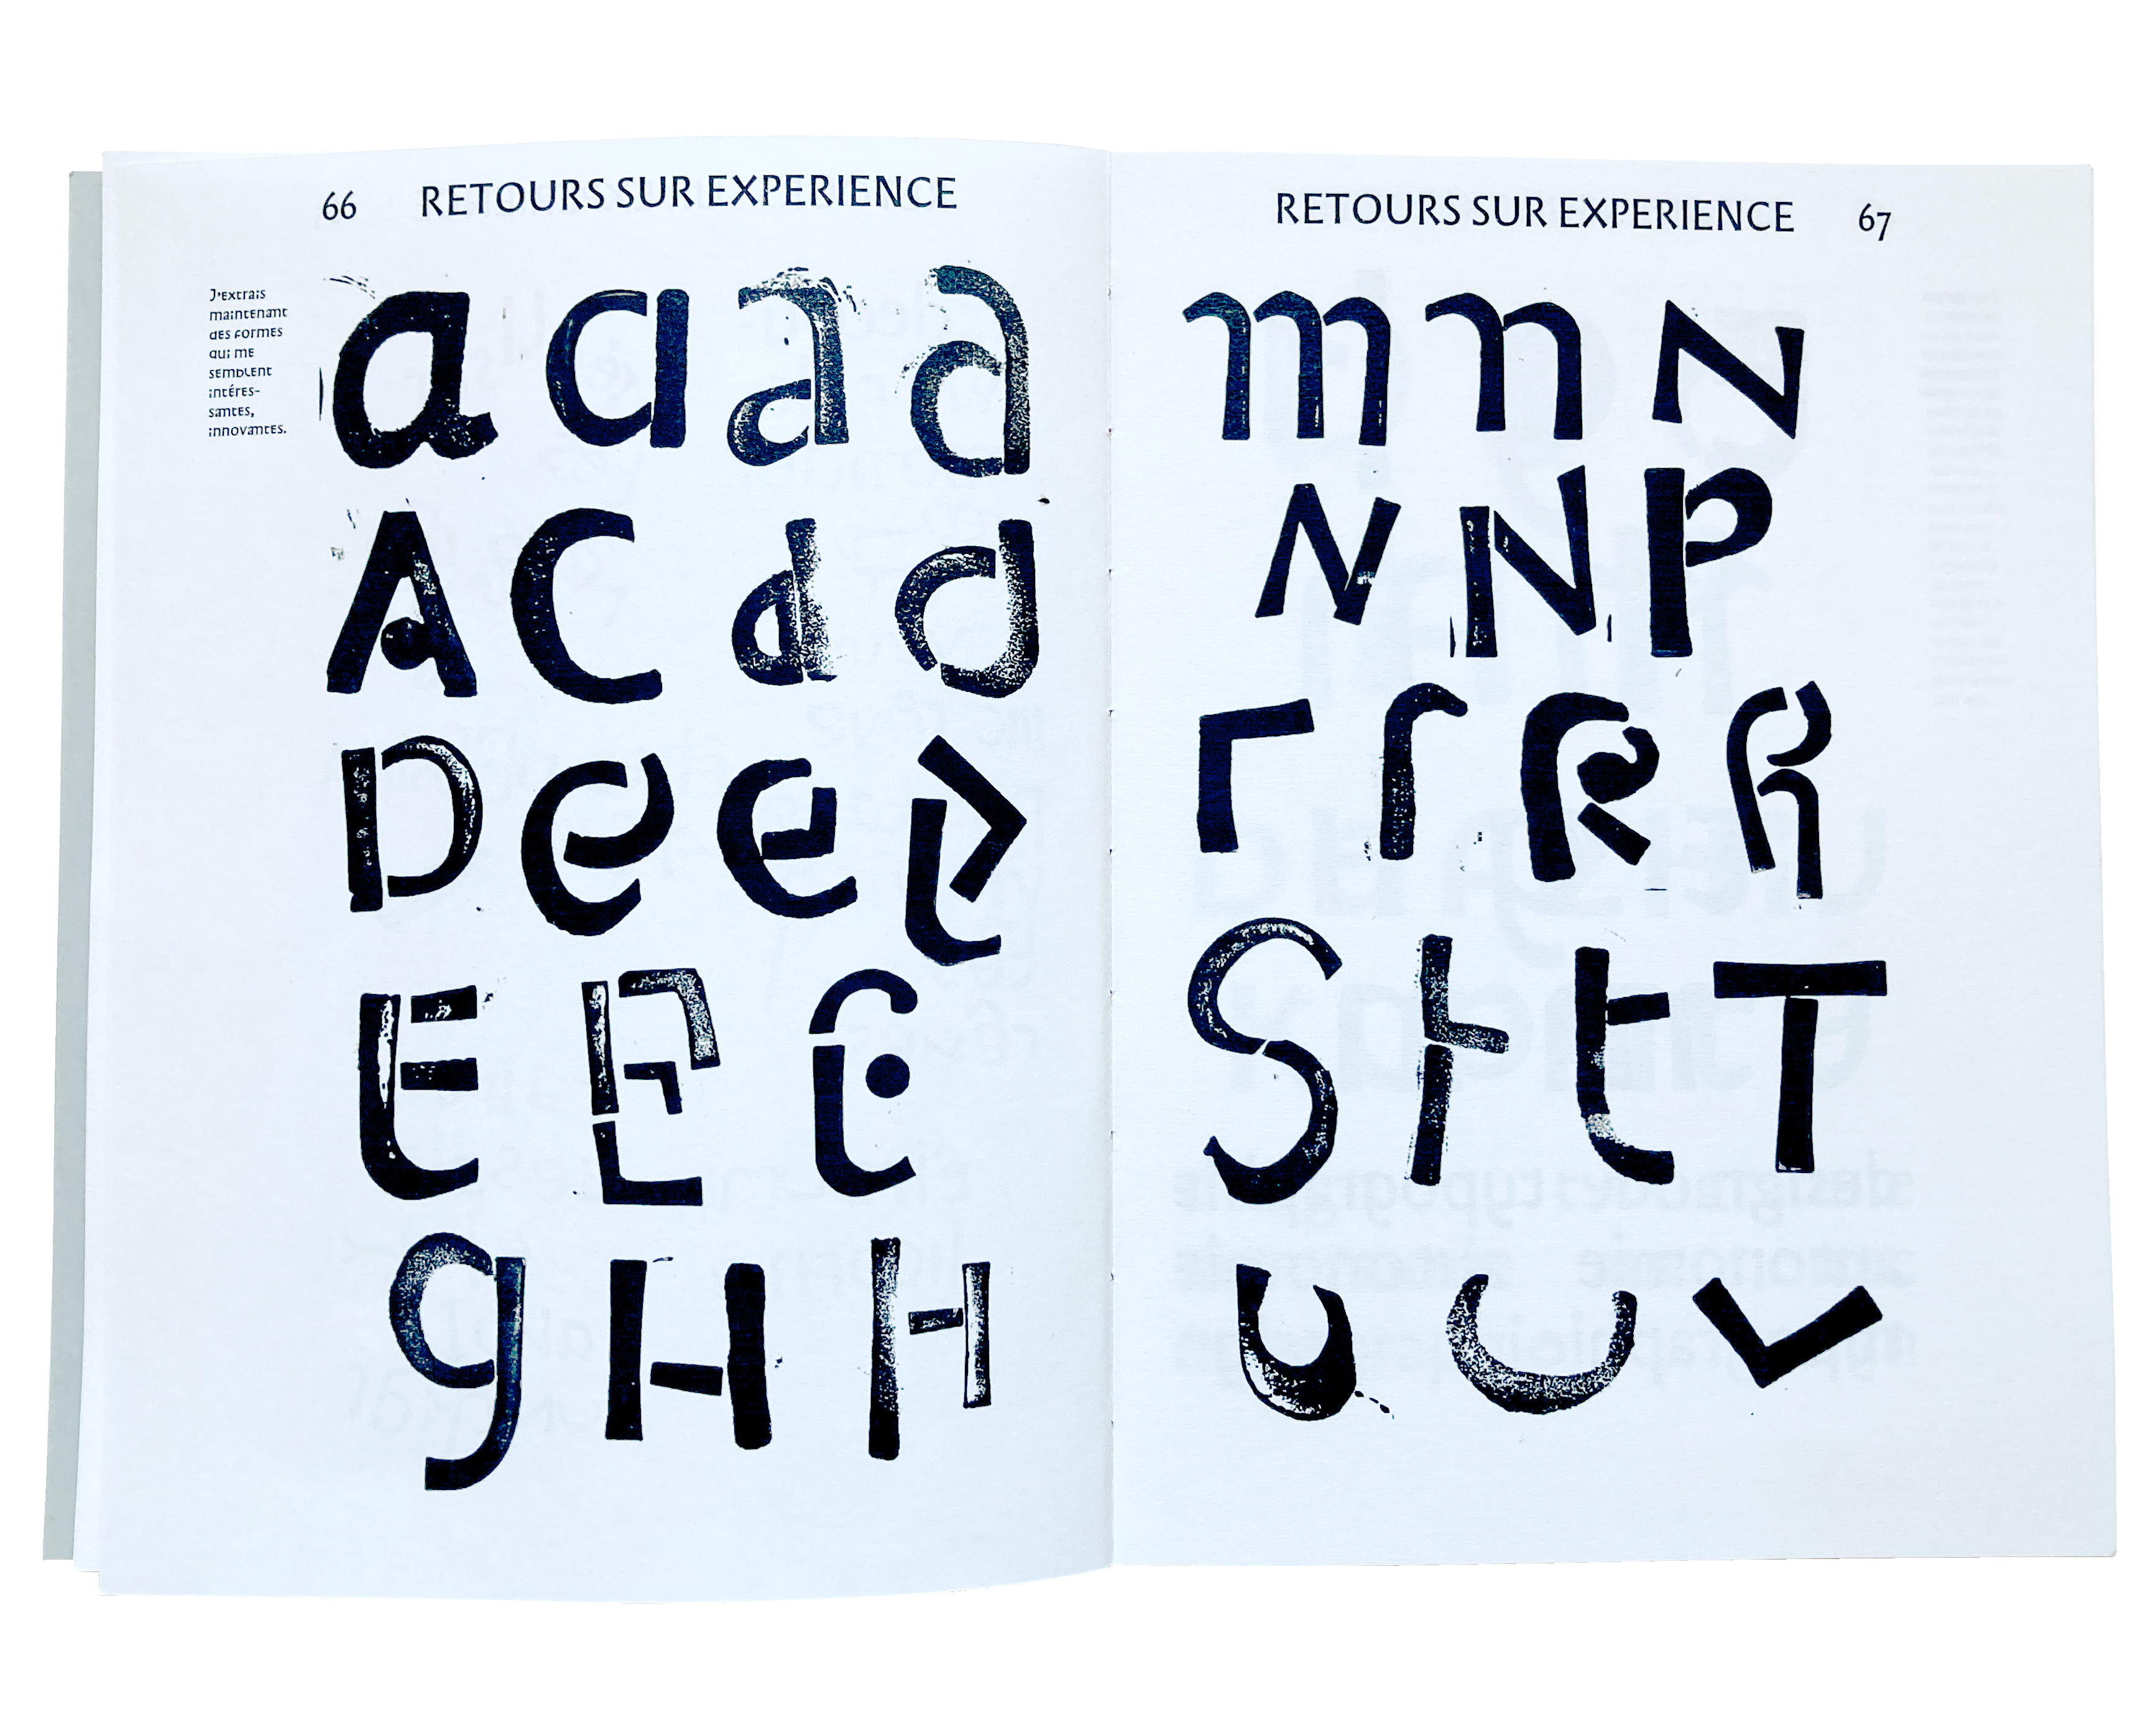 66 RETOURS SUR EXPERIENCE
J'extrais
maintenant
des formes
qui me
semblent
intéres-
santes,
innovantes.
a a a a
A C d d
D e e e
E E E
g H H
RETOURS SUR EXPERIENCE 67
m n N
N N P
r r R R
S t t T
u u v